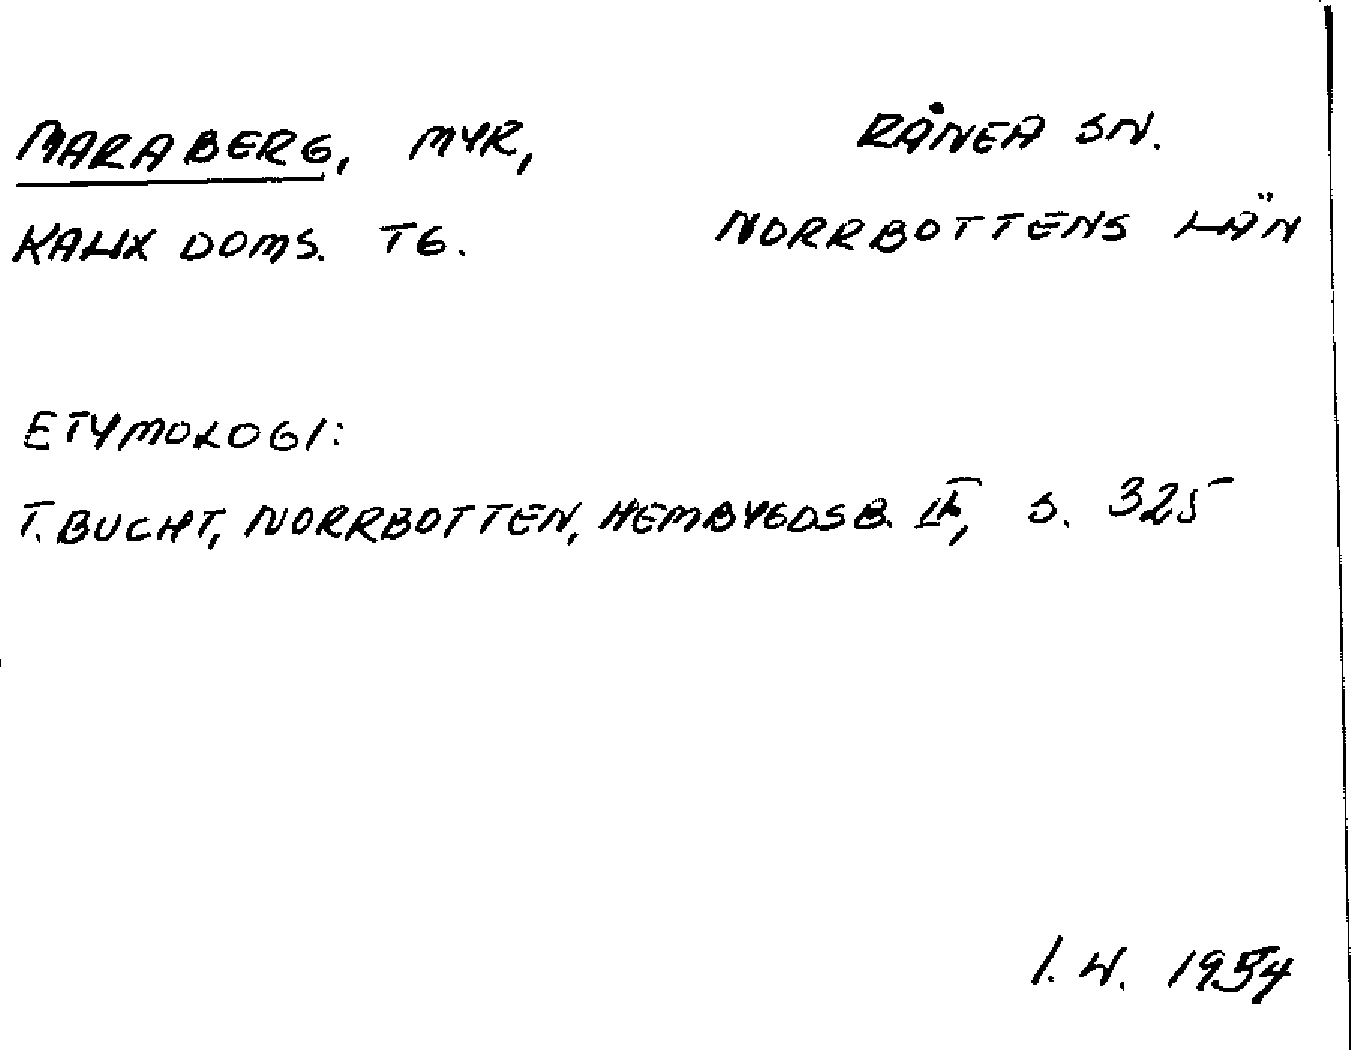 MARABERG, MYR, RÅNEA SN.
KALIX DOMS. TG. NORRBOTTENS LÄN
ETYMOLOGI:
T. BUCHT, NORRBOTTEN, HEMBYGDSB. II, S. 325
I. W. 1954